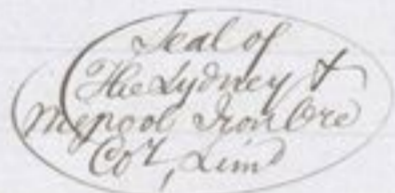 Seal of
The Lydney &
Mepool Iron Ore
Coy, Limd